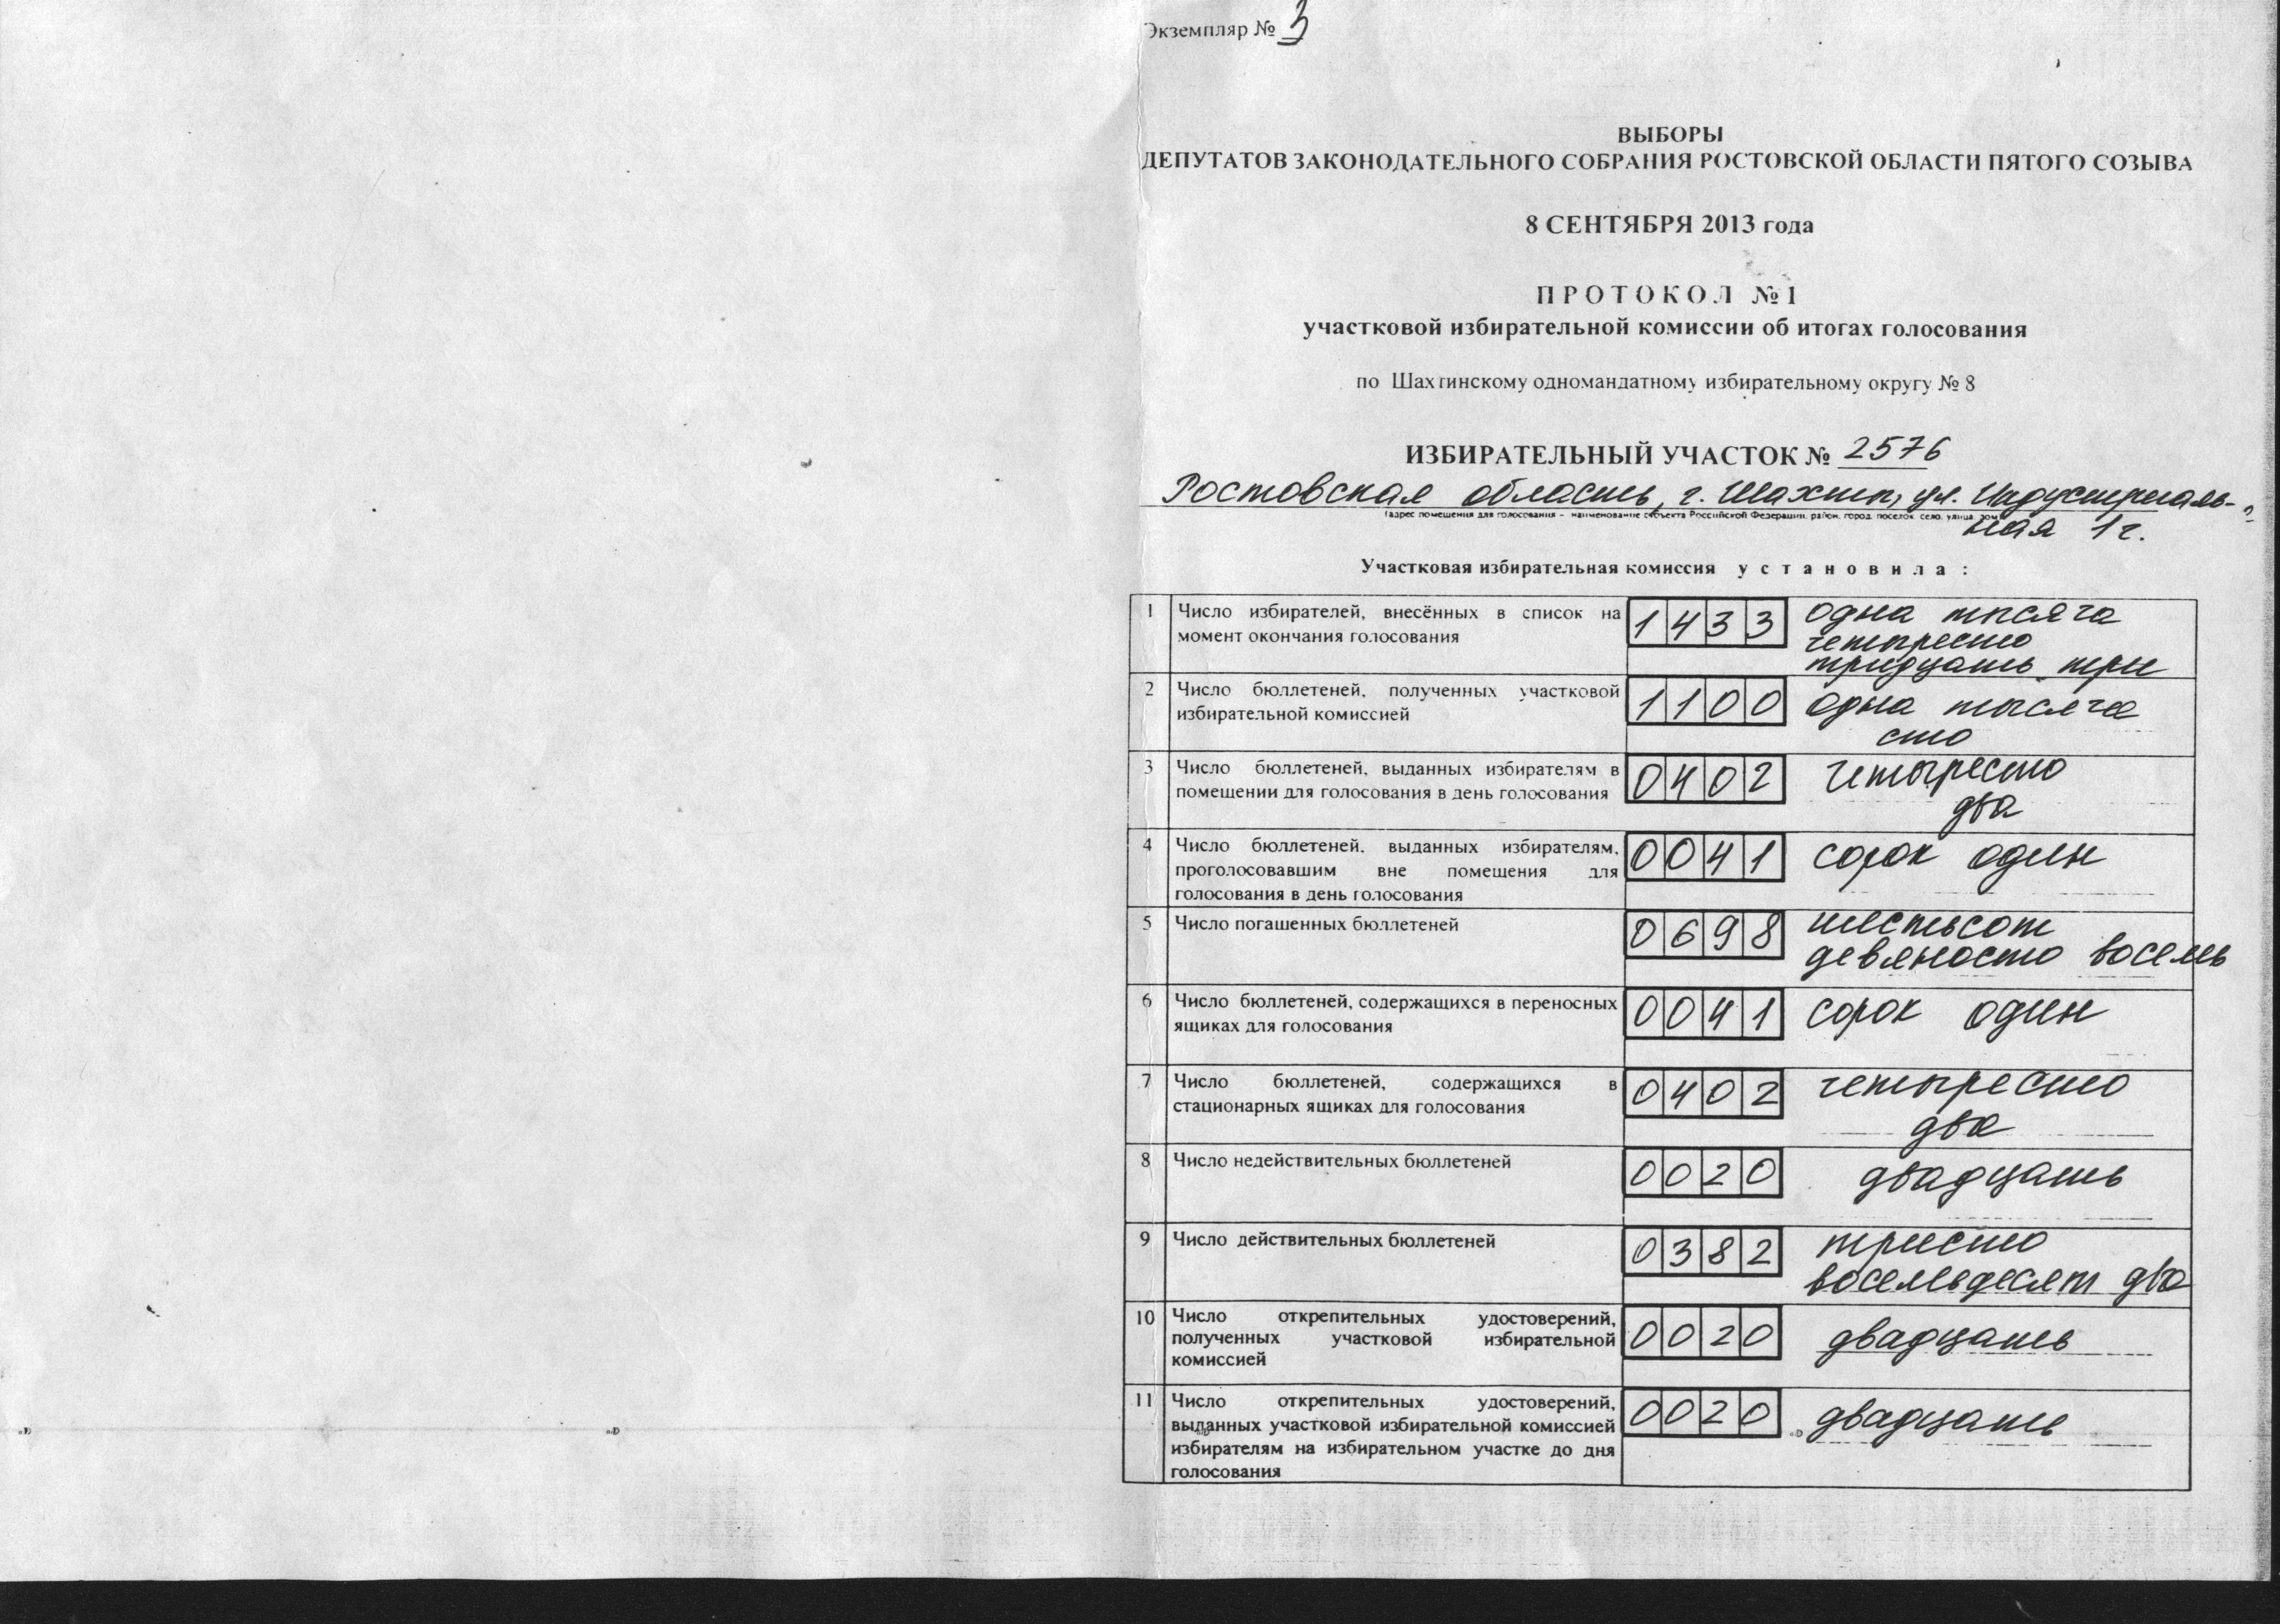 Экземпляр № 3
ВЫБОРЫ
ДЕПУТАТОВ ЗАКОНОДАТЕЛЬНОГО СОБРАНИЯ РОСТОВСКОЙ ОБЛАСТИ ПЯТОГО СОЗЫВА
8 СЕНТЯБРЯ 2013 года
П Р О Т О К О Л № 1
участковой избирательной комиссии об итогах голосования
по Шахтинскому одномандатному избирательному округу № 8
ИЗБИРАТЕЛЬНЫЙ УЧАСТОК № 2576
Ростовская область, г. Шахты, ул. Индустриаль-
(адрес помещения для голосования – наименование субъекта Российской Федерации, район, город, поселок, село, улица, дом)
ная 1г.
Участковая избирательная комиссия у с т а н о в и л а :
1 Число избирателей, внесённых в список на 1433 одна тысяча
момент окончания голосования четыресто
тридцать три
2 Число бюллетеней, полученных участковой 1100 одна тысяча
избирательной комиссией сто
3 Число бюллетеней, выданных избирателям в 0402 четыресто
помещении для голосования в день голосования два
4 Число бюллетеней, выданных избирателям, 0041 сорок один
проголосовавшим вне помещения для
голосования в день голосования
5 Число погашенных бюллетеней 0698 шестьсот
девяносто восемь
6 Число бюллетеней, содержащихся в переносных 0041 сорок один
ящиках для голосования
7 Число бюллетеней, содержащихся в 0402 четыресто
стационарных ящиках для голосования два
8 Число недействительных бюллетеней 0020 двадцать
9 Число действительных бюллетеней 0382 тристо
восемьдесят два
10 Число открепительных удостоверений, 0020 двадцать
полученных участковой избирательной
комиссией
11 Число открепительных удостоверений, 0020 двадцать
выданных участковой избирательной комиссией
избирателям на избирательном участке до дня
голосования